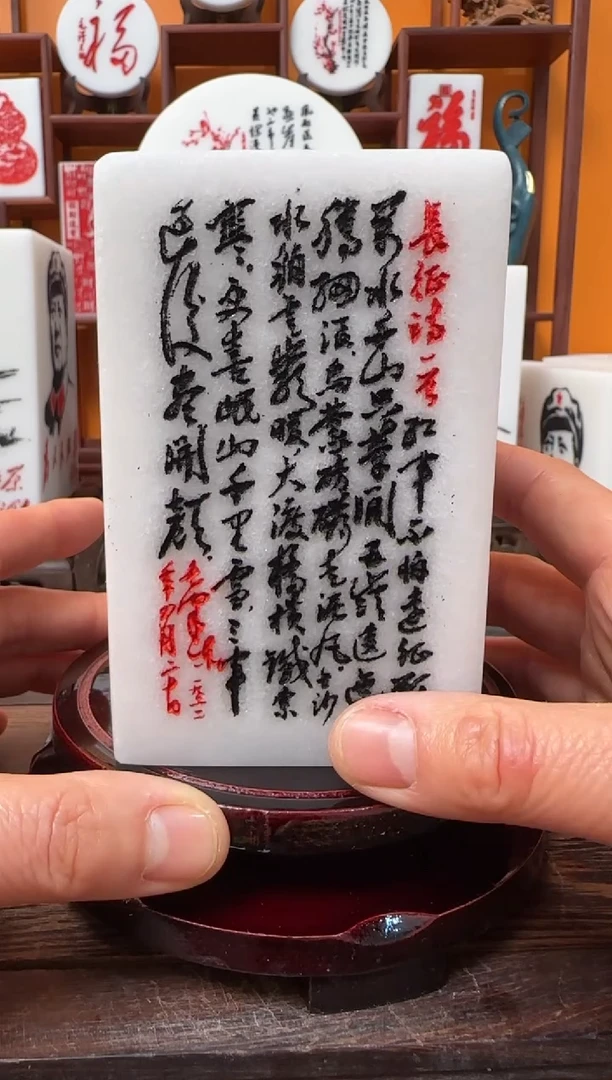 長征詩一首
紅軍不怕遠征難
萬水千山只等閒五嶺逶迤
騰細浪烏蒙磅礴走泥丸金沙
水拍雲崖暖大渡橋橫鐵索
寒更喜岷山千里雪三軍
過後盡開顏
毛澤東一九六二
年四月二十日
福
福